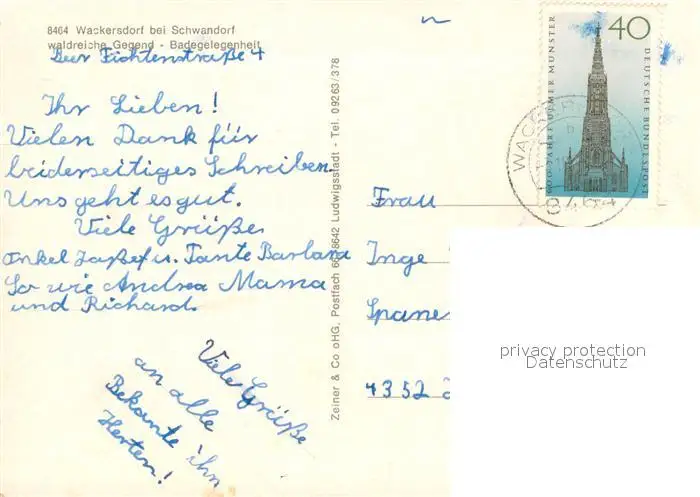 8464 Wackersdorf bei Schwandorf
waldreiche Gegend - Badegelegenheit
Fichtenstraße 4
Ihr Lieben!
Vielen Dank für
beiderseitiges Schreiben
Uns geht es gut.
Viele Grüße
Onkel u. Tante Barbara
So wie Andrea Mama
und Richard.
Viele Grüße
an alle
Bekante ihn
Herten!
Zeiner & Co oHG, Postfach 66, 8642 Ludwigsstadt - Tel. 09263/378
40
600 JAHRE ULMER MÜNSTER
DEUTSCHE BUNDESPOST
8464
Frau
Inge
Spane
4352
privacy protection
Datenschutz